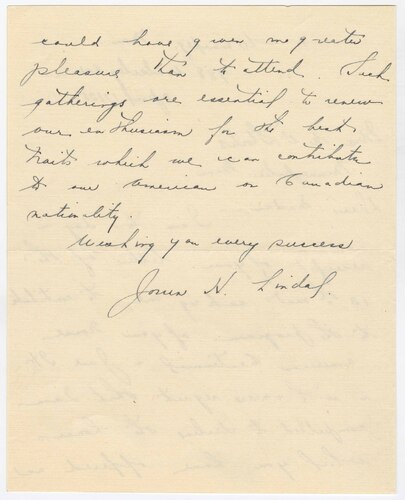 could have given me greater
pleasure than to attend. Such
gatherings are essential to renew
our enthusiasm for the best
traits which we can contribute
to our American or Canadian
nationality.
Wishing you every success
N. Lindal.